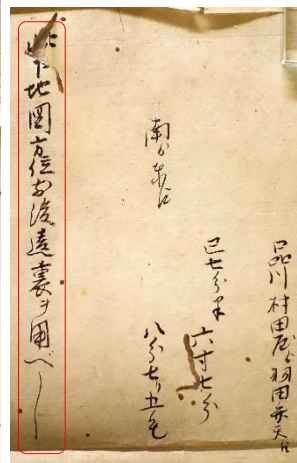 品川村田屋ゟ羽田弁天迄
巳七分半 六寸七分
八分七り五毛
南ゟ東江
此下地図方位前後違裏ヲ用べし